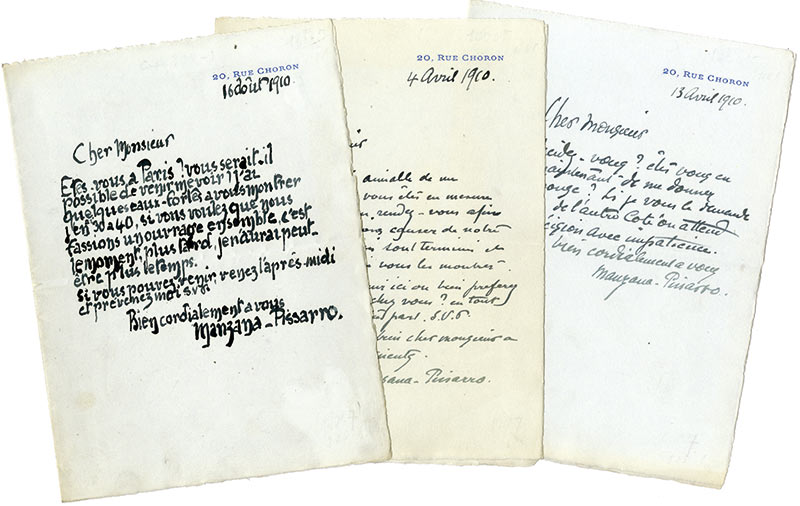 20, Rue Choron
16 août 1910.
Cher Monsieur
Etes-vous a Paris? vous serait-il
possible de venir me voir! J'ai
quelques eaux-fortes a vous montrer
j'en 30 a 40, si vous voulez que nous
fassions un ouvrage ensemble c'est
le moment, plus tard, je n'aurai peut-
être plus le temps.
si vous pouvez venir venez l'après-midi
et prévenez moi S.V.P.
Bien cordialement a vous
Manzana-Pissarro.
20, Rue Choron
4 Avril 1910.
aimable de me
vous êtes en mesure
rendez-vous afin
causer de notre
sont terminés
vous les montrer.
ici ou bien preferez
chez vous? en tout
part. S.V.P.
bien cher monsieur a
Pissarro.
20, Rue Choron
13 Avril 1910.
Cher Monsieur
vous? êtes vous en
maintenant de me donner
? Si je vous le demande
de l'autre coté on attend
avec impatience.
bien cordialement a vous
Manzana-Pissarro.